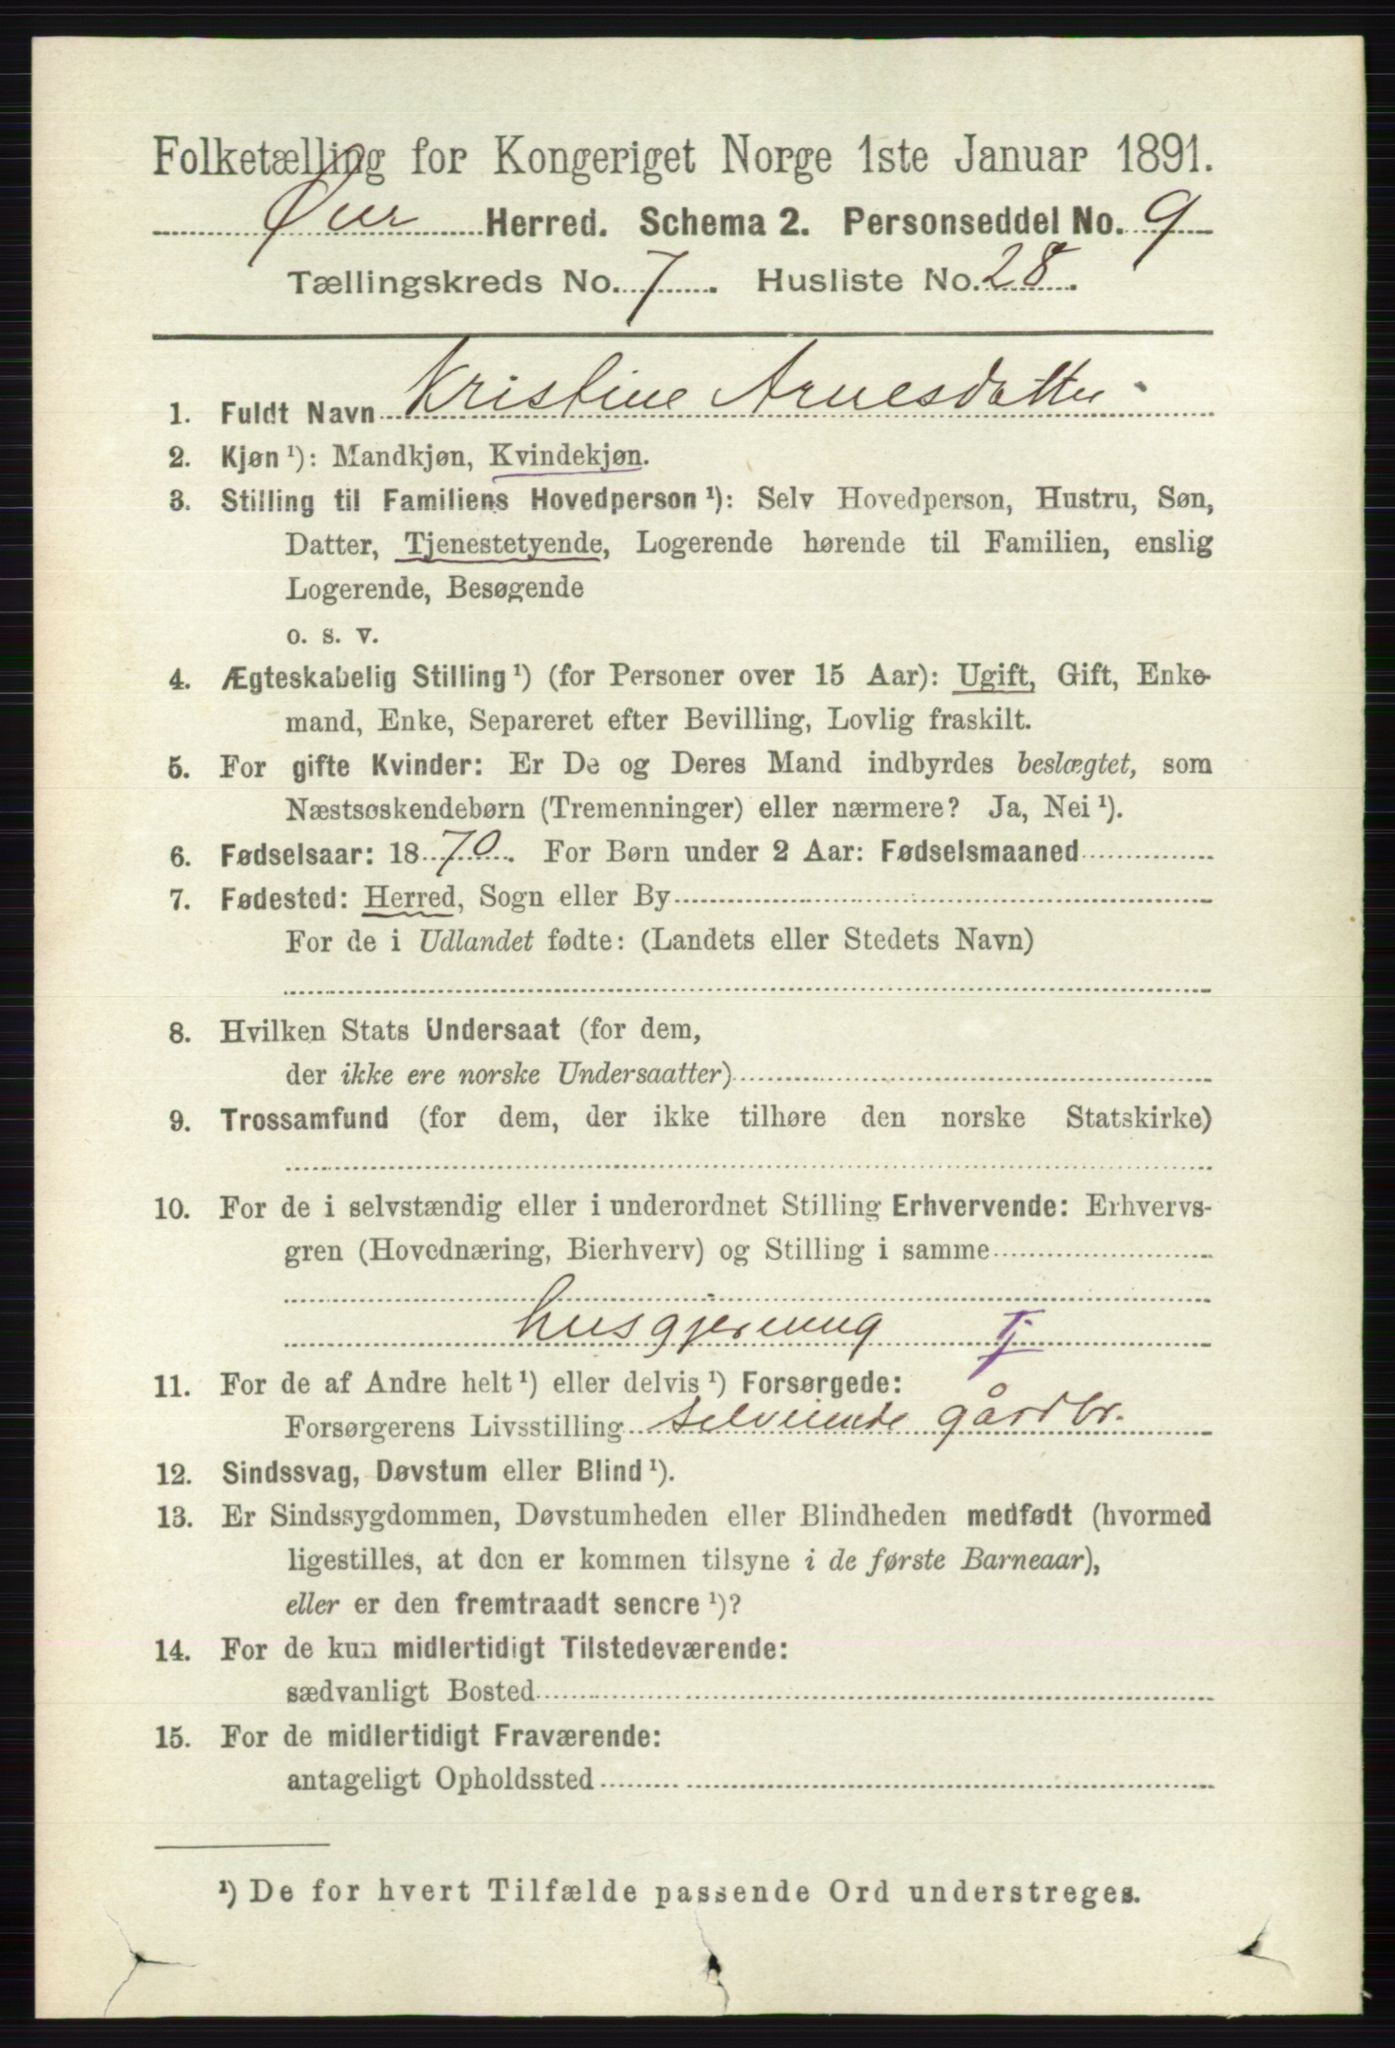 Folketælling for Kongeriget Norge 1ste Januar 1891.
Øier Herred. Schema 2. Personseddel No. 9
Tællingskreds No. 7. Husliste No. 28.
1. Fuldt Navn Kristine Arnesdatter
2. Kjøn ¹): Mandkjøn, Kvindekjøn.
3. Stilling til Familiens Hovedperson ¹): Selv Hovedperson, Hustru, Søn,
Datter, Tjenestetyende, Logerende hørende til Familien, enslig
Logerende, Besøgende
o. s. v.
4. Ægteskabelig Stilling ¹) (for Personer over 15 Aar): Ugift, Gift, Enke-
mand, Enke, Separeret efter Bevilling, Lovlig fraskilt.
5. For gifte Kvinder: Er De og Deres Mand indbyrdes beslægtet, som
Næstsøskendebørn (Tremenninger) eller nærmere? Ja, Nei ¹).
6. Fødselsaar: 1870. For Børn under 2 Aar: Fødselsmaaned
7. Fødested: Herred, Sogn eller By
For de i Udlandet fødte: (Landets eller Stedets Navn)
8. Hvilken Stats Undersaat (for dem,
der ikke ere norske Undersaatter)
9. Trossamfund (for dem, der ikke tilhøre den norske Statskirke)
10. For de i selvstændig eller i underordnet Stilling Erhvervende: Erhvervs-
gren (Hovednæring, Bierhverv) og Stilling i samme
husgjerning Tj
11. For de af Andre helt ¹) eller delvis ¹) Forsørgede:
Forsørgerens Livsstilling selveiende gårdbr.
12. Sindssvag, Døvstum eller Blind ¹).
13. Er Sindssygdommen, Døvstumheden eller Blindheden medfødt (hvormed
ligestilles, at den er kommen tilsyne i de første Barneaar),
eller er den fremtraadt senere ¹)?
14. For de kun midlertidigt Tilstedeværende:
sædvanligt Bosted
15. For de midlertidigt Fraværende:
antageligt Opholdssted
¹) De for hvert Tilfælde passende Ord understreges.